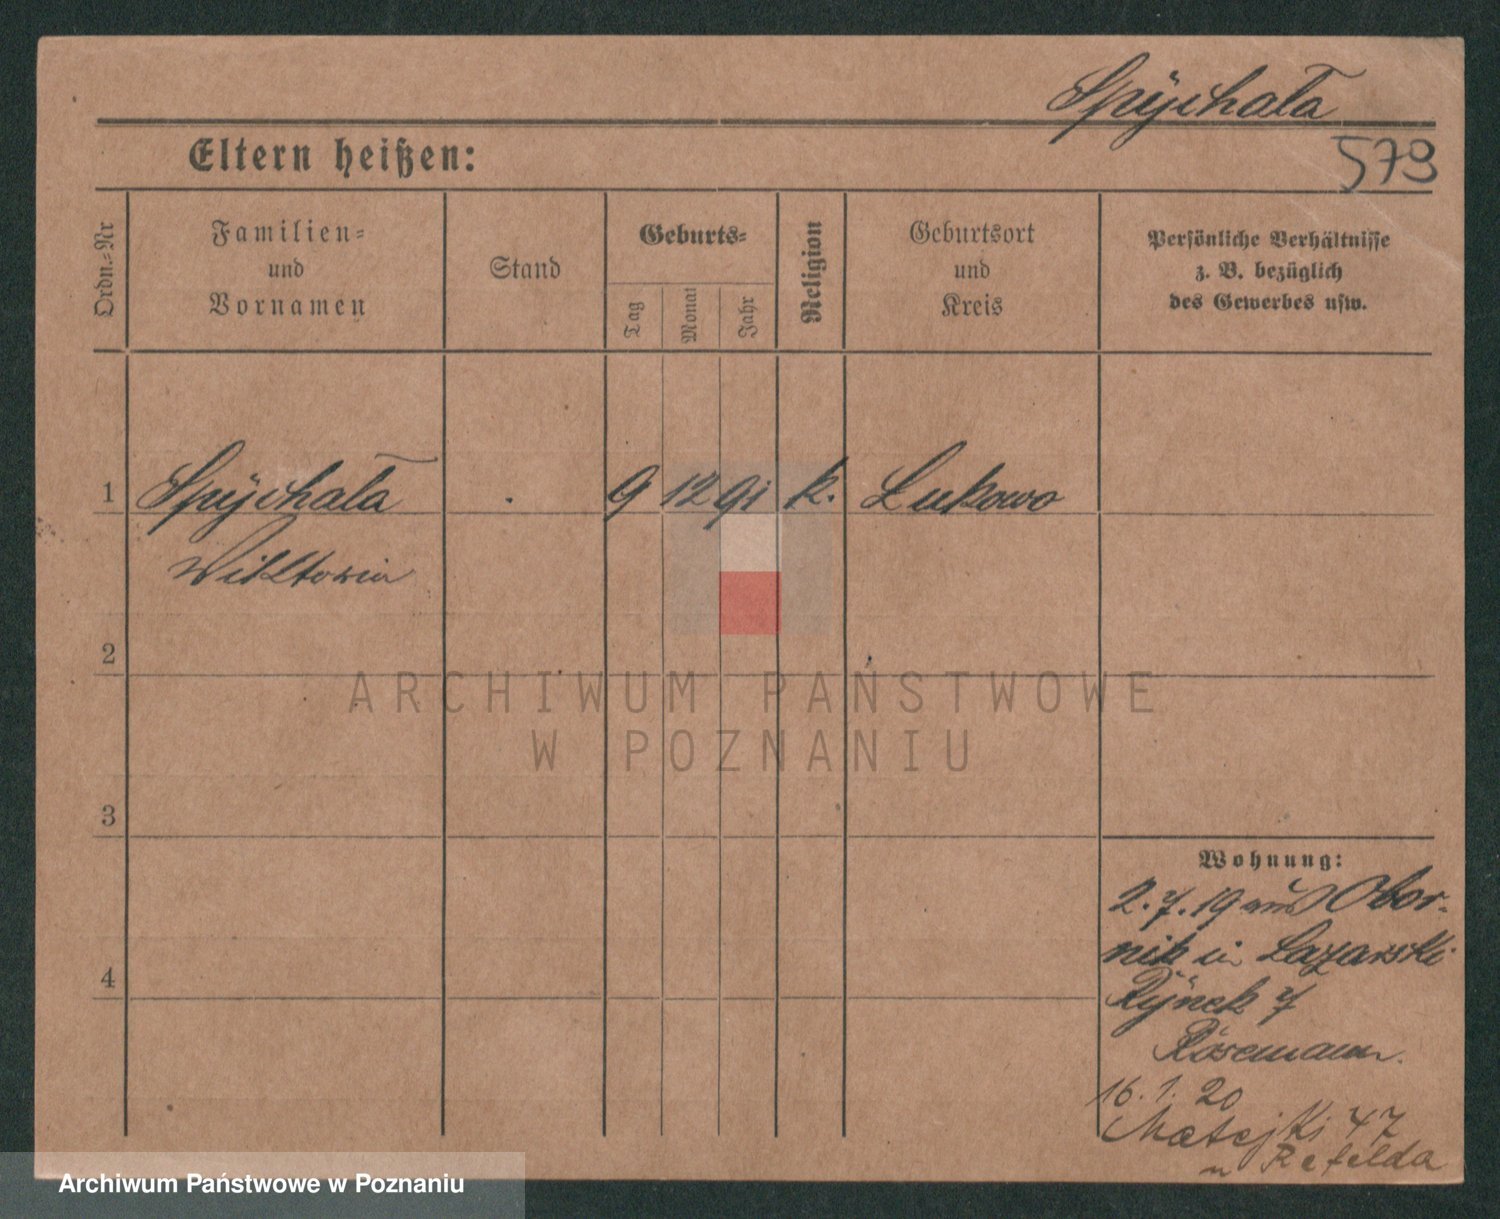 Spÿchała
579
Eltern heißen:
Ordn.-Nr
Familien-
und
Vornamen
Stand
Geburts-
Tag
Monat
Jahr
Religion
Geburtsort
und
Kreis
Persönliche Verhältnisse
z. B. bezüglich
des Gewerbes usw.
1
Spÿchała
. 9 12 91 k. Lukowo
Wiktoria
2
ARCHIWUM PAŃSTWOWE
W POZNANIU
3
Wohnung:
2. 7. 19 aus Obor-
nik in Lazarski
4
Rÿnek 7
Rosemann.
16. 1. 20
Matejki 47
u Refelda
Archiwum Państwowe w Poznaniu